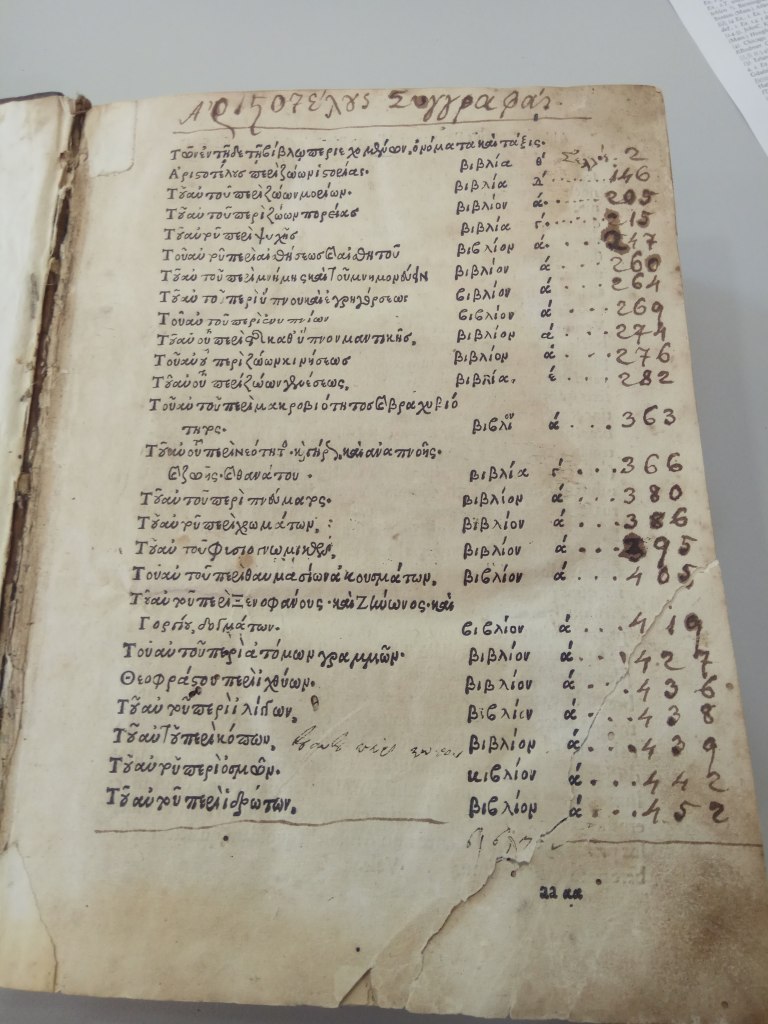 Ἀριστοτέλους Συγγραφαί.
Τῶν ἐν τῇδε τῇ βίβλῳ περιεχομένων, ὀνόματα καὶ τάξις.
Ἀριστοτέλους περὶ ζώων ἱστορίας. βιβλία θ΄ 2
Τοῦ αὐτοῦ περὶ ζώων μορίων. βιβλία δ΄ 146
Τοῦ αὐτοῦ περὶ ζώων πορείας βιβλίον ά. 205
Τοῦ αὐτοῦ περὶ ψυχῆς βιβλία γ΄. 215
Τοῦ αὐτοῦ περὶ αἰσθήσεως καὶ αἰσθητοῦ βιβλίον ά. 247
Τοῦ αὐτοῦ περὶ μνήμης καὶ τοῦ μνημονεύειν βιβλίον ά 260
Τοῦ αὐτοῦ περὶ ὕπνου καὶ ἐγρηγόρσεως βιβλίον ά 264
Τοῦ αὐτοῦ περὶ ἐνυπνίων βιβλίον ά 269
Τοῦ αὐτοῦ περὶ τῆς καθ' ὕπνον μαντικῆς. βιβλίον ά 274
Τοῦ αὐτοῦ περὶ ζώων κινήσεως βιβλίον ά 276
Τοῦ αὐτοῦ περὶ ζώων γενέσεως. βιβλία. έ 282
Τοῦ αὐτοῦ περὶ μακροβιότητος καὶ βραχυβιό
τητος. βιβλίον ά 363
Τοῦ αὐτοῦ περὶ νεότητος. καὶ γήρως, καὶ ἀναπνοῆς.
καὶ ζωῆς. καὶ θανάτου. βιβλία γ΄ 366
Τοῦ αὐτοῦ περὶ πνεύματος. βιβλίον ά 380
Τοῦ αὐτοῦ περὶ χρωμάτων. βιβλίον ά 386
Τοῦ αὐτοῦ φυσιογνωμικῶν. βιβλίον ά 395
Τοῦ αὐτοῦ περὶ θαυμασίων ἀκουσμάτων. βιβλίον ά 405
Τοῦ αὐτοῦ περὶ Ξενοφάνους. καὶ Ζήνωνος. καὶ
Γοργίου, δογμάτων. βιβλίον ά 419
Τοῦ αὐτοῦ περὶ ἀτόμων γραμμῶν. βιβλίον ά 427
Θεοφράστου περὶ ἰχθύων. βιβλίον ά 436
Τοῦ αὐτοῦ περὶ ἰλίγγων. βιβλίον ά 438
Τοῦ αὐτοῦ περὶ κόπων. βιβλίον ά 439
Τοῦ αὐτοῦ περὶ ὀσμῶν. βιβλίον ά 442
Τοῦ αὐτοῦ περὶ ἱδρώτων. βιβλίον ά 452
aa αα